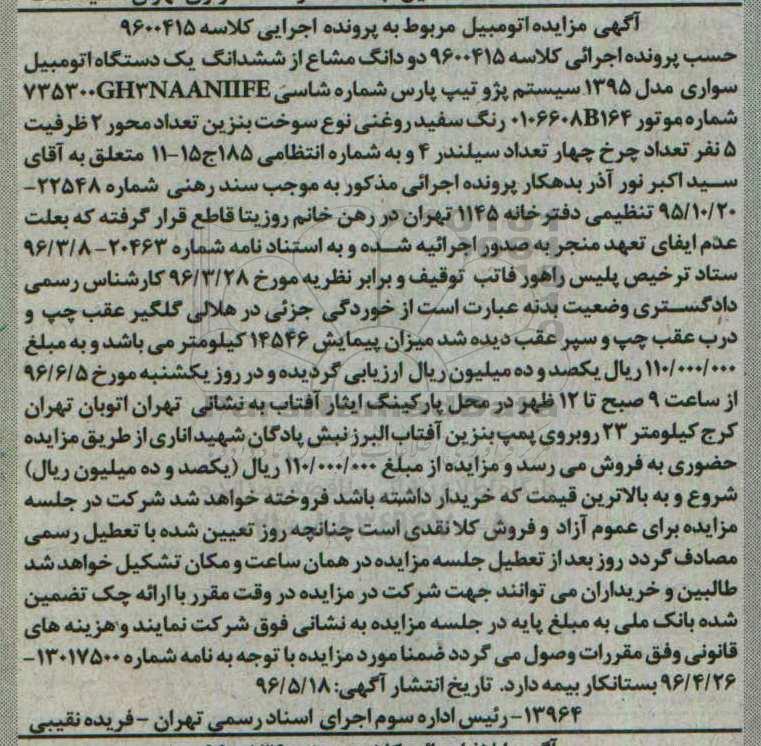 آگهی مزایده اتومبیل مربوط به پرونده اجرایی کلاسه ۹۶۰۰۴۱۵
حسب پرونده اجرائی کلاسه ۹۶۰۰۴۱۵ دو دانگ مشاع از ششدانگ یک دستگاه اتومبیل
سواری مدل ۱۳۹۵ سیستم پژو تیپ پارس شماره شاسی ۷۳۵۳۰۰GH۳NAANIIFE
شماره موتور ۰۱۰۶۶۰۸B۱۶۴ رنگ سفید روغنی نوع سوخت بنزین تعداد محور ۲ ظرفیت
۵ نفر تعداد چرخ چهار تعداد سیلندر ۴ و به شماره انتظامی ۱۸۵ج۱۵-۱۱ متعلق به آقای
سید اکبر نور آذر بدهکار پرونده اجرائی مذکور به موجب سند رهنی شماره ۲۲۵۴۸-
۹۵/۱۰/۲۰ تنظیمی دفترخانه ۱۱۴۵ تهران در رهن خانم روزیتا قاطع قرار گرفته که بعلت
عدم ایفای تعهد منجر به صدور اجرائیه شده و به استناد نامه شماره ۲۰۴۶۳-۹۶/۳/۸
ستاد ترخیص پلیس راهور فاتب توقیف و برابر نظریه مورخ ۹۶/۳/۲۸ کارشناس رسمی
دادگستری وضعیت بدنه عبارت است از خوردگی جزئی در هلالی گلگیر عقب چپ و
درب عقب چپ و سپر عقب دیده شد میزان پیمایش ۱۴۵۴۶ کیلومتر می باشد و به مبلغ
۱۱۰/۰۰۰/۰۰۰ ریال یکصد و ده میلیون ریال ارزیابی گردیده و در روز یکشنبه مورخ ۹۶/۶/۵
از ساعت ۹ صبح تا ۱۲ ظهر در محل پارکینگ ایثار آفتاب به نشانی تهران اتوبان تهران
کرج کیلومتر ۲۳ روبروی پمپ بنزین آفتاب البرز نبش پادگان شهید اناری از طریق مزایده
حضوری به فروش می رسد و مزایده از مبلغ ۱۱۰/۰۰۰/۰۰۰ ریال (یکصد و ده میلیون ریال)
شروع و به بالاترین قیمت که خریدار داشته باشد فروخته خواهد شد شرکت در جلسه
مزایده برای عموم آزاد و فروش کلا نقدی است چنانچه روز تعیین شده با تعطیل رسمی
مصادف گردد روز بعد از تعطیل جلسه مزایده در همان ساعت و مکان تشکیل خواهد شد
طالبین و خریداران می توانند جهت شرکت در مزایده در وقت مقرر با ارائه چک تضمین
شده بانک ملی به مبلغ پایه در جلسه مزایده به نشانی فوق شرکت نمایند و هزینه های
قانونی وفق مقررات وصول می گردد ضمنا مورد مزایده با توجه به نامه شماره ۱۳۰۱۷۵۰۰-
۹۶/۴/۲۶ بستانکار بیمه دارد. تاریخ انتشار آگهی: ۹۶/۵/۱۸
۱۳۹۶۴-رئیس اداره سوم اجرای اسناد رسمی تهران -فریده نقیبی